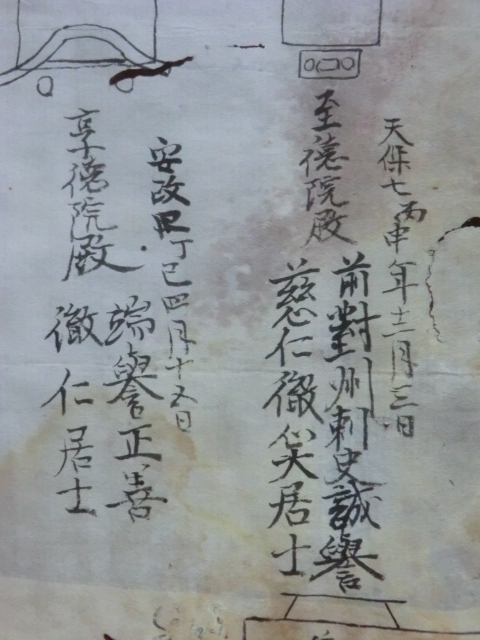 天保七丙申年十二月三日
至德院殿
前對州刺史誠譽
慈仁徹笑居士
安政四丁巳四月十五日
享德院殿
端譽正善
徹仁居士